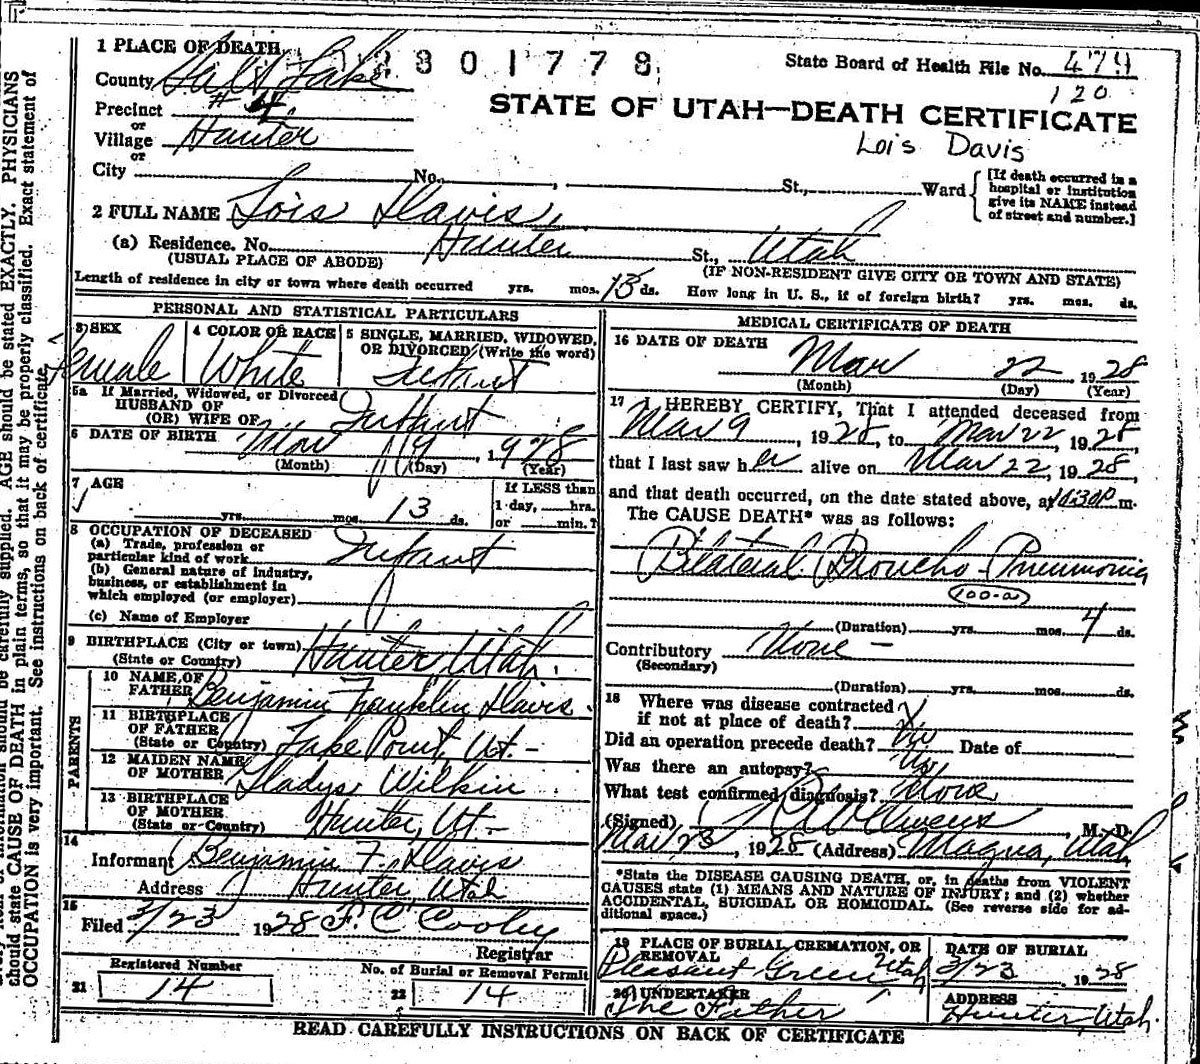 1 PLACE OF DEATH 2801778 State Board of Health File No. 479
County Salt Lake 120
Precinct # 4.
STATE OF UTAH—DEATH CERTIFICATE
or
Village Hunter Lois Davis
or
City No. , St., Ward [If death occurred in a hospital or institution give its NAME instead of street and number.]
2 FULL NAME Lois Davis.
(a) Residence. No. Hunter St., Utah
(USUAL PLACE OF ABODE) (IF NON-RESIDENT GIVE CITY OR TOWN AND STATE)
Length of residence in city or town where death occurred yrs. mos. 13 ds. How long in U. S., if of foreign birth? yrs. mos. ds.
PERSONAL AND STATISTICAL PARTICULARS
3 SEX 4 COLOR OR RACE 5 SINGLE, MARRIED, WIDOWED,
OR DIVORCED (Write the word)
Female White Infant
5a If Married, Widowed, or Divorced
HUSBAND OF
(OR) WIFE OF Infant
6 DATE OF BIRTH Mar 9, 1928
(Month) (Day) (Year)
7 AGE If LESS than
1 day, hrs.
yrs. mos. 13 ds. or min.?
8 OCCUPATION OF DECEASED
(a) Trade, profession or
particular kind of work Infant
(b) General nature of industry,
business, or establishment in
which employed (or employer)
(c) Name of Employer
9 BIRTHPLACE (City or town)
(State or Country) Hunter, Utah.
PARENTS
10 NAME OF
FATHER Benjamin Franklin Davis.
11 BIRTHPLACE
OF FATHER
(State or Country) Lake Point, Ut-
12 MAIDEN NAME
OF MOTHER Gladys Wilkin
13 BIRTHPLACE
OF MOTHER
(State or Country) Hunter, Ut-
14
Informant Benjamin F. Davis
Address Hunter Utah
15
Filed 3/23 1928 F. C. Cooley
Registrar
Registered Number No. of Burial or Removal Permit
21 14 22 14
MEDICAL CERTIFICATE OF DEATH
16 DATE OF DEATH Mar 22 1928
(Month) (Day) (Year)
17 I HEREBY CERTIFY, That I attended deceased from
Mar 9, 1928, to Mar 22, 1928,
that I last saw her alive on Mar 22, 1928,
and that death occurred, on the date stated above, at 10:30P m.
The CAUSE DEATH* was as follows:
Bilateral Broncho-Pneumonia
100-a
(Duration) yrs. mos. 4 ds.
Contributory None -
(Secondary)
(Duration) yrs. mos. ds.
18 Where was disease contracted
if not at place of death? X
Did an operation precede death? no Date of
Was there an autopsy? No
What test confirmed diagnosis? None
(Signed) Owens, M. D.
Mar 23, 1928 (Address) Magna, Utah
*State the DISEASE CAUSING DEATH, or, in deaths from VIOLENT
CAUSES state (1) MEANS AND NATURE OF INJURY; and (2) whether
ACCIDENTAL, SUICIDAL OR HOMICIDAL. (See reverse side for ad-
ditional space.)
19 PLACE OF BURIAL, CREMATION, OR REMOVAL DATE OF BURIAL
Pleasant Green Utah 3/23 1928
20 UNDERTAKER ADDRESS
The Father Hunter, Utah.
READ CAREFULLY INSTRUCTIONS ON BACK OF CERTIFICATE
carefully supplied. AGE should be stated EXACTLY. PHYSICIANS
should state CAUSE OF DEATH in plain terms, so that it may be properly classified. Exact statement of
OCCUPATION is very important. See instructions on back of certificate.